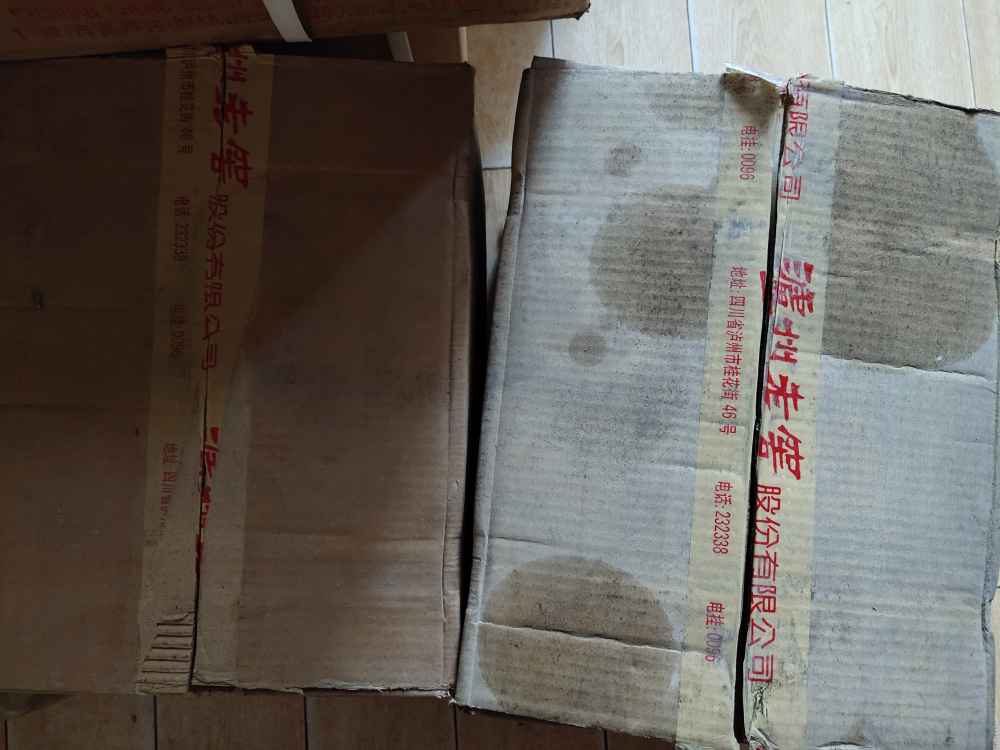 州老窖
股份有限公司
电话: 232338
电挂: 0096
地址: 四川省
有限公司
电挂: 0096
泸州老窖
股份有限公司
地址: 四川省泸州市桂花街 46 号
电话: 232338
电挂: 0096